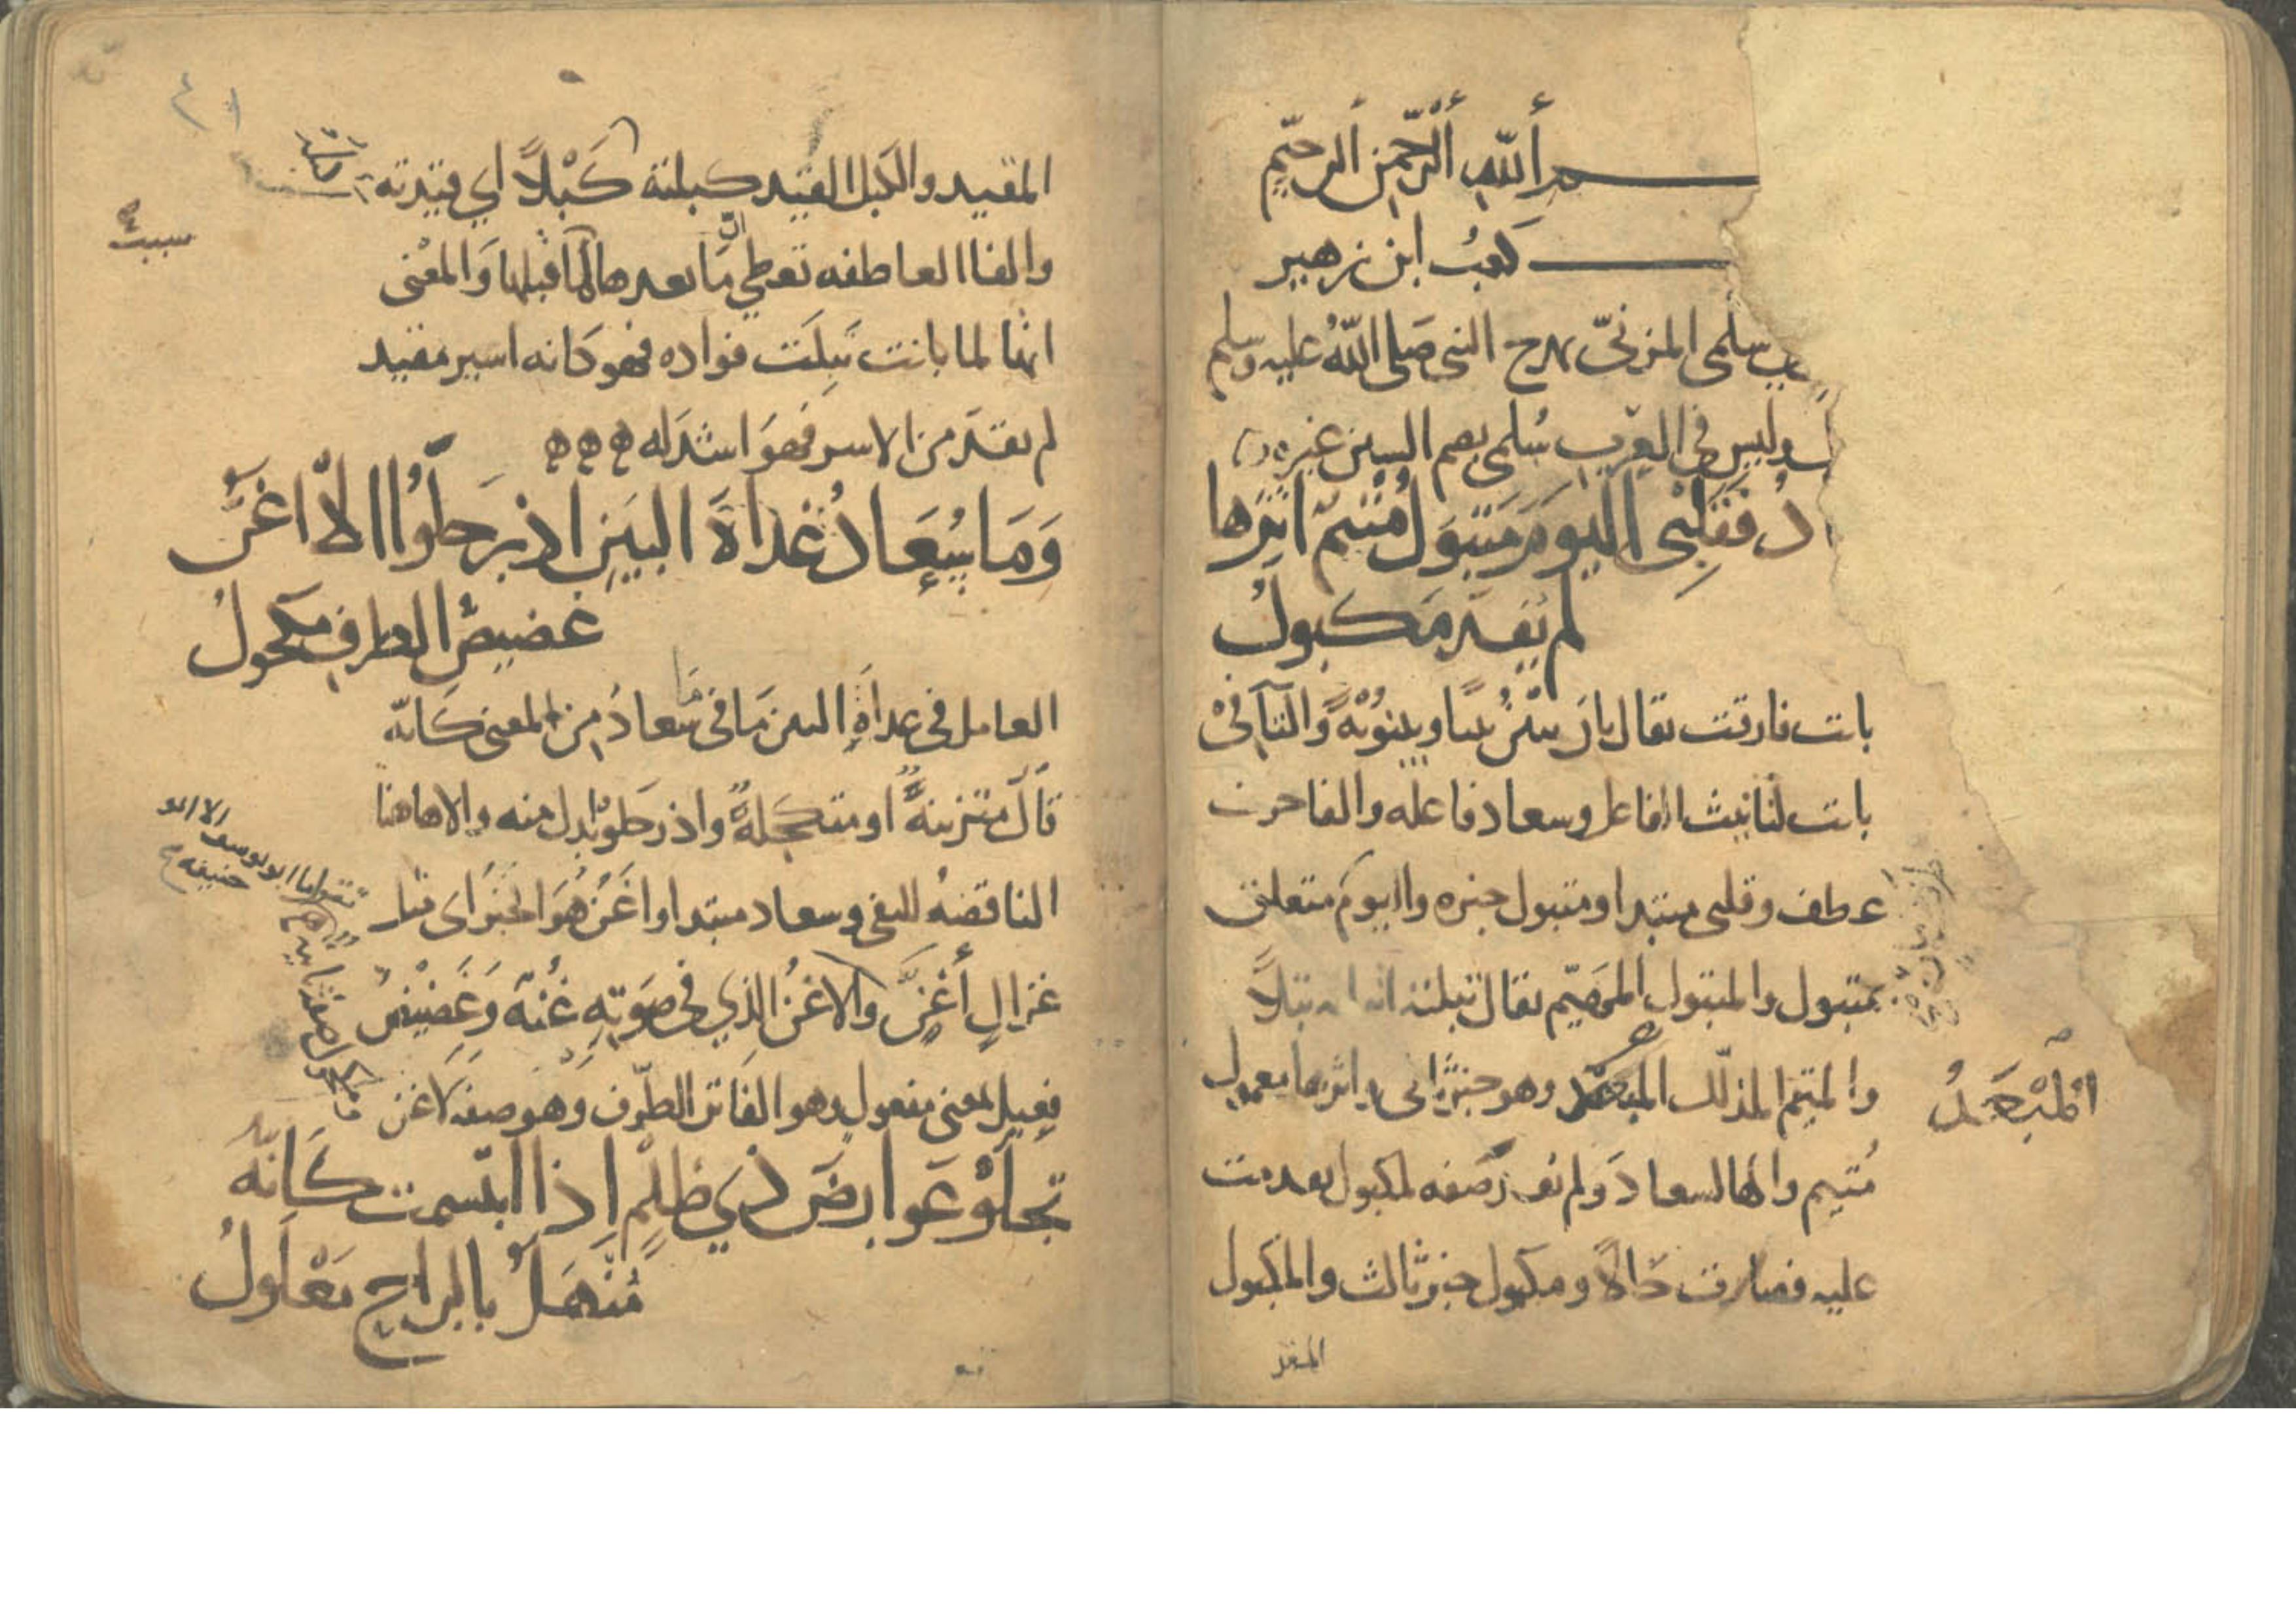 ـم الله الرحمن الرحيم
كعب ابن زهير
سلمى المزني يمدح النبي صلى الله عليه وسلم
وليس في العرب سُلمى بضم السين غيره
دُ فقلبي اليوم متبول متيم اثرها
لم يفد مكبول
بانت فارقت يقال بان يبين بينا وبينونة والتآ في
بانت لتانيث الفاعل وسعاد فاعله والفا حرف
عطف وقلبي مبتدا ومتبول خبره واليوم متعلق
بمتبول والمتبول يقال تبلته تبلاً
والمتيم المذلل المبعد وهو خبر ثاني واثرها معمول
المُبَعَدُ
مُتيم والها لسعاد ولم يفد صفه لمكبول تقدمت
عليه فصارت حالا ومكبول خبر ثالث والمكبول
المقيد
المقيد والكبل القيد كبلته كَبْلاً اي قيدته
والفا العاطفه تعطي انّ ما بعدها لما قبلها والمعنى
سبب
انها لما بانت تبلت فواده فهو كانه اسير مقيد
لم يفد من الاسر فهو اشد له ه ه ه
وَمَا سُعَادُ غداةَ البين اذ رحلوا الا اغن
غضيض الطرف مكحول
العامل في غداة البين ما في سعاد من المعنى كانه
قال متزينة او متكحلة واذ رحلو بدل منه والا هاهنا
الناقضة للنفي وسعاد مبتدا واغن هو الخبر اي مثل
غزال أغن والاغن الذي في صوته غُنة وغضيض
فعيل بمعنى مفعول وهو الفاتر الطرف وهو صفة لاغن
تجلو عوارض ذي ظلم اذا ابتسمت كانه
مُنهَلٌ بالراح معلول